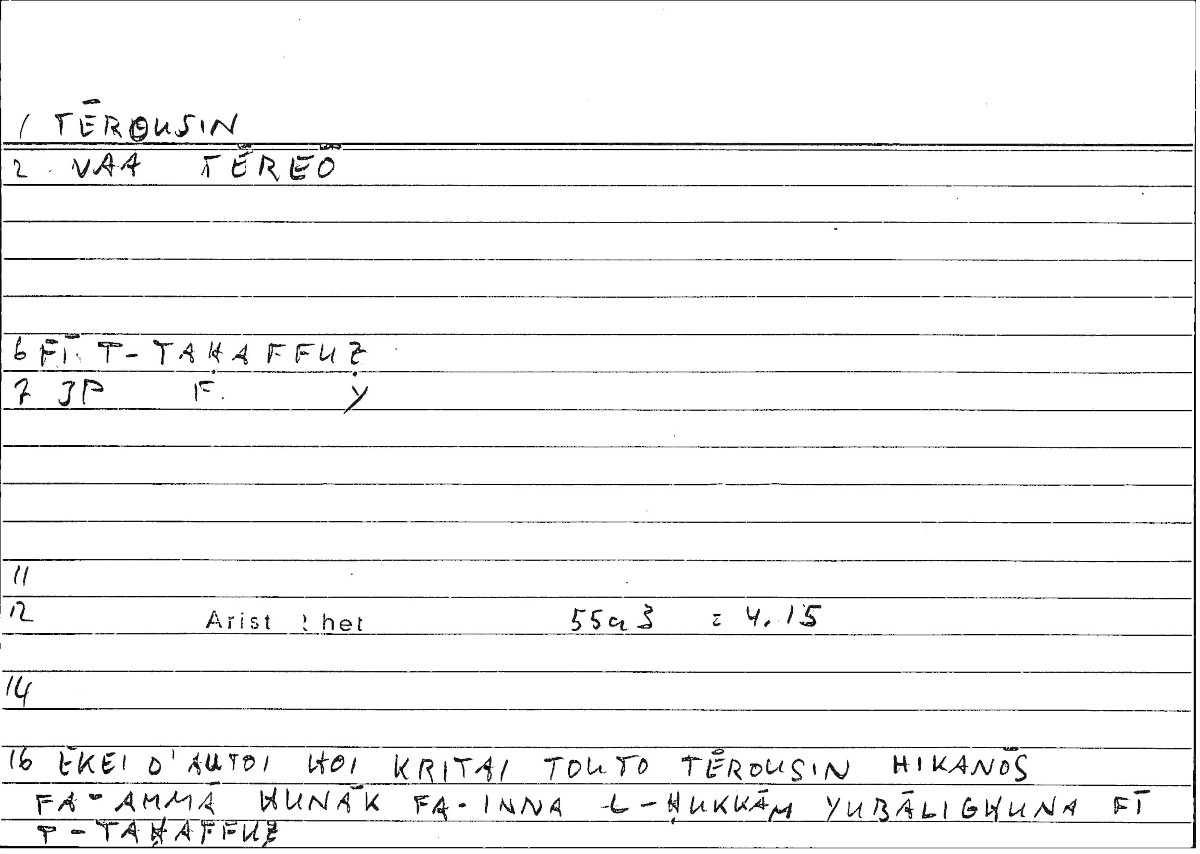 1 TĒROUSIN
2 VAA TĒREŌ
6 FĪ T-TAḤAFFUẒ
7 3P F. Y
11
12 Arist Rhet 55a3 = 4.15
14
16 EKEI D'AUTOI HOI KRITAI TOUTO TĒROUSIN HIKANŌS
FA-AMMĀ HUNĀK FA-INNA L-ḤUKKĀM YUBĀLIGHUNA FĪ
T-TAḤAFFUẒ